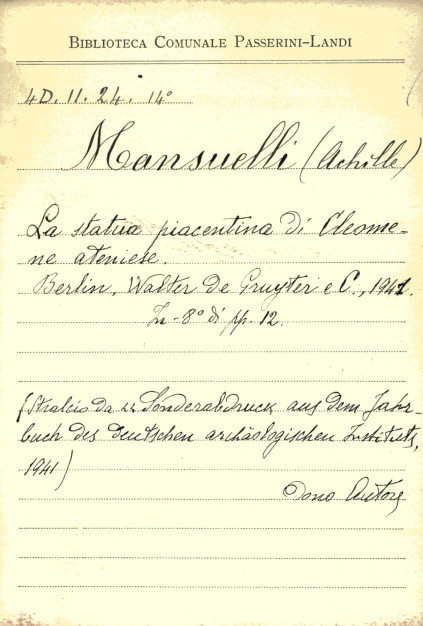 BIBLIOTECA COMUNALE PASSERINI-LANDI
4D. 11. 24. 14°
Mansuelli (Achille)
La statua piacentina di Cleome-
ne ateniese.
Berlin, Walter de Gruyter e C., 1941.
In-8° di pp. 12.
(Stralcio da "Sonderabdruck aus dem Jahr-
buch des deutschen archäologischen Instituts,
1941)
Dono Autore